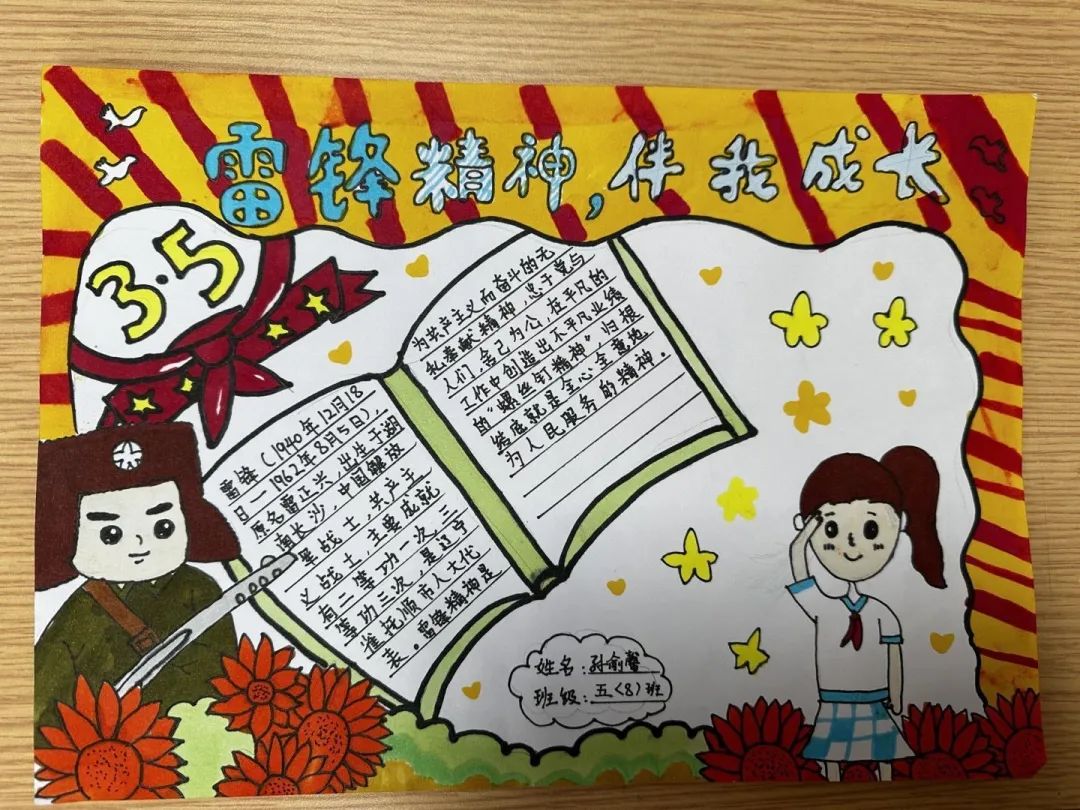 雷锋精神,伴我成长
3·5
雷锋(1940年12月18
日—1962年8月5日),
原名雷正兴,出生于湖
南长沙,中国解放
军战士,共产主
义战士,主要成就
有二等功一次三
等功三次 是辽宁
雀抚顺市人大代
表。雷锋精神是
为共产主义而奋斗的无
私奉献精神,忠于党与
人们,舍己为公,在平凡的
工作中创造出不平凡业绩
的“螺丝钉精神”归根
结底就是全心全意地
为人民服务的精神。
姓名:孙俞馨
班级:五〈8〉班